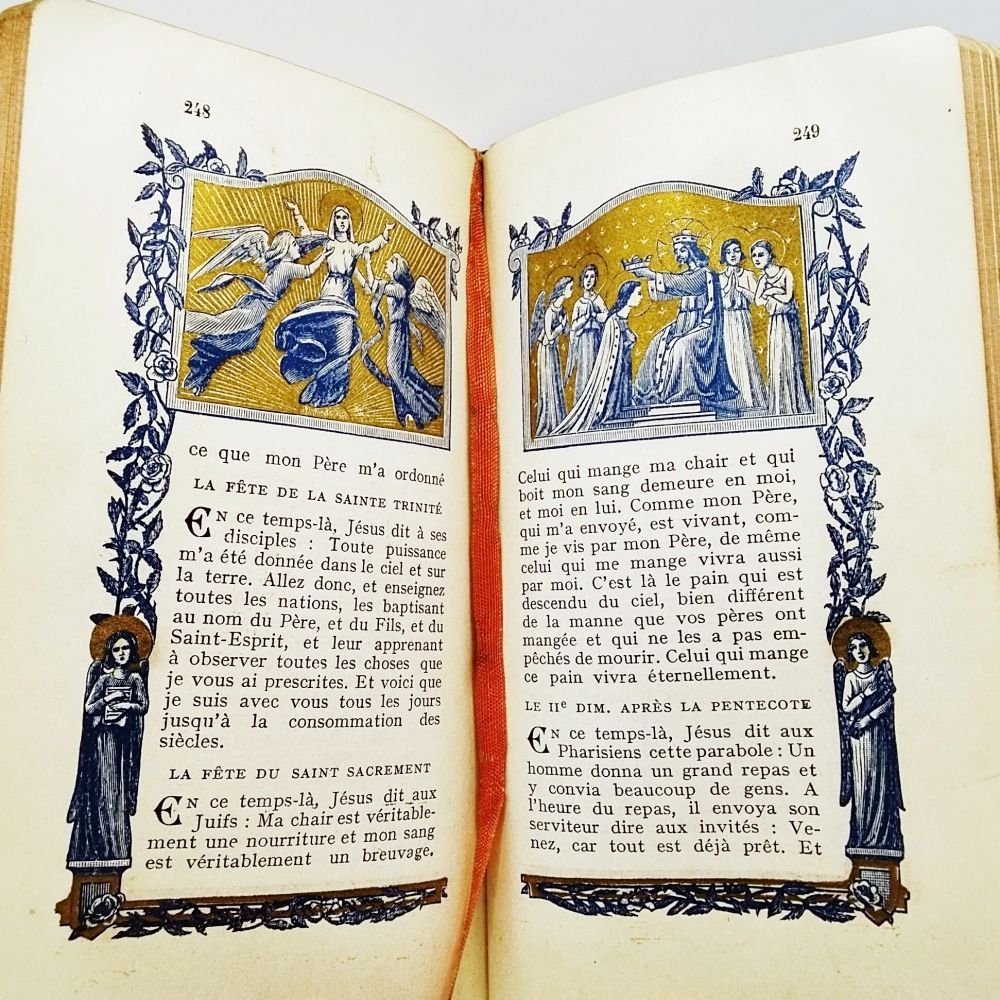 248
ce que mon Père m'a ordonné
LA FÊTE DE LA SAINTE TRINITÉ
EN ce temps-là, Jésus dit à ses
disciples : Toute puissance
m'a été donnée dans le ciel et sur
la terre. Allez donc, et enseignez
toutes les nations, les baptisant
au nom du Père, et du Fils, et du
Saint-Esprit, et leur apprenant
à observer toutes les choses que
je vous ai prescrites. Et voici que
je suis avec vous tous les jours
jusqu'à la consommation des
siècles.
LA FÊTE DU SAINT SACREMENT
EN ce temps-là, Jésus dit aux
Juifs : Ma chair est véritable-
ment une nourriture et mon sang
est véritablement un breuvage.
249
Celui qui mange ma chair et qui
boit mon sang demeure en moi,
et moi en lui. Comme mon Père,
qui m'a envoyé, est vivant, com-
me je vis par mon Père, de même
celui qui me mange vivra aussi
par moi. C'est là le pain qui est
descendu du ciel, bien différent
de la manne que vos pères ont
mangée et qui ne les a pas em-
pêchés de mourir. Celui qui mange
ce pain vivra éternellement.
LE IIe DIM. APRÈS LA PENTECOTE
EN ce temps-là, Jésus dit aux
Pharisiens cette parabole : Un
homme donna un grand repas et
y convia beaucoup de gens. A
l'heure du repas, il envoya son
serviteur dire aux invités : Ve-
nez, car tout est déjà prêt. Et